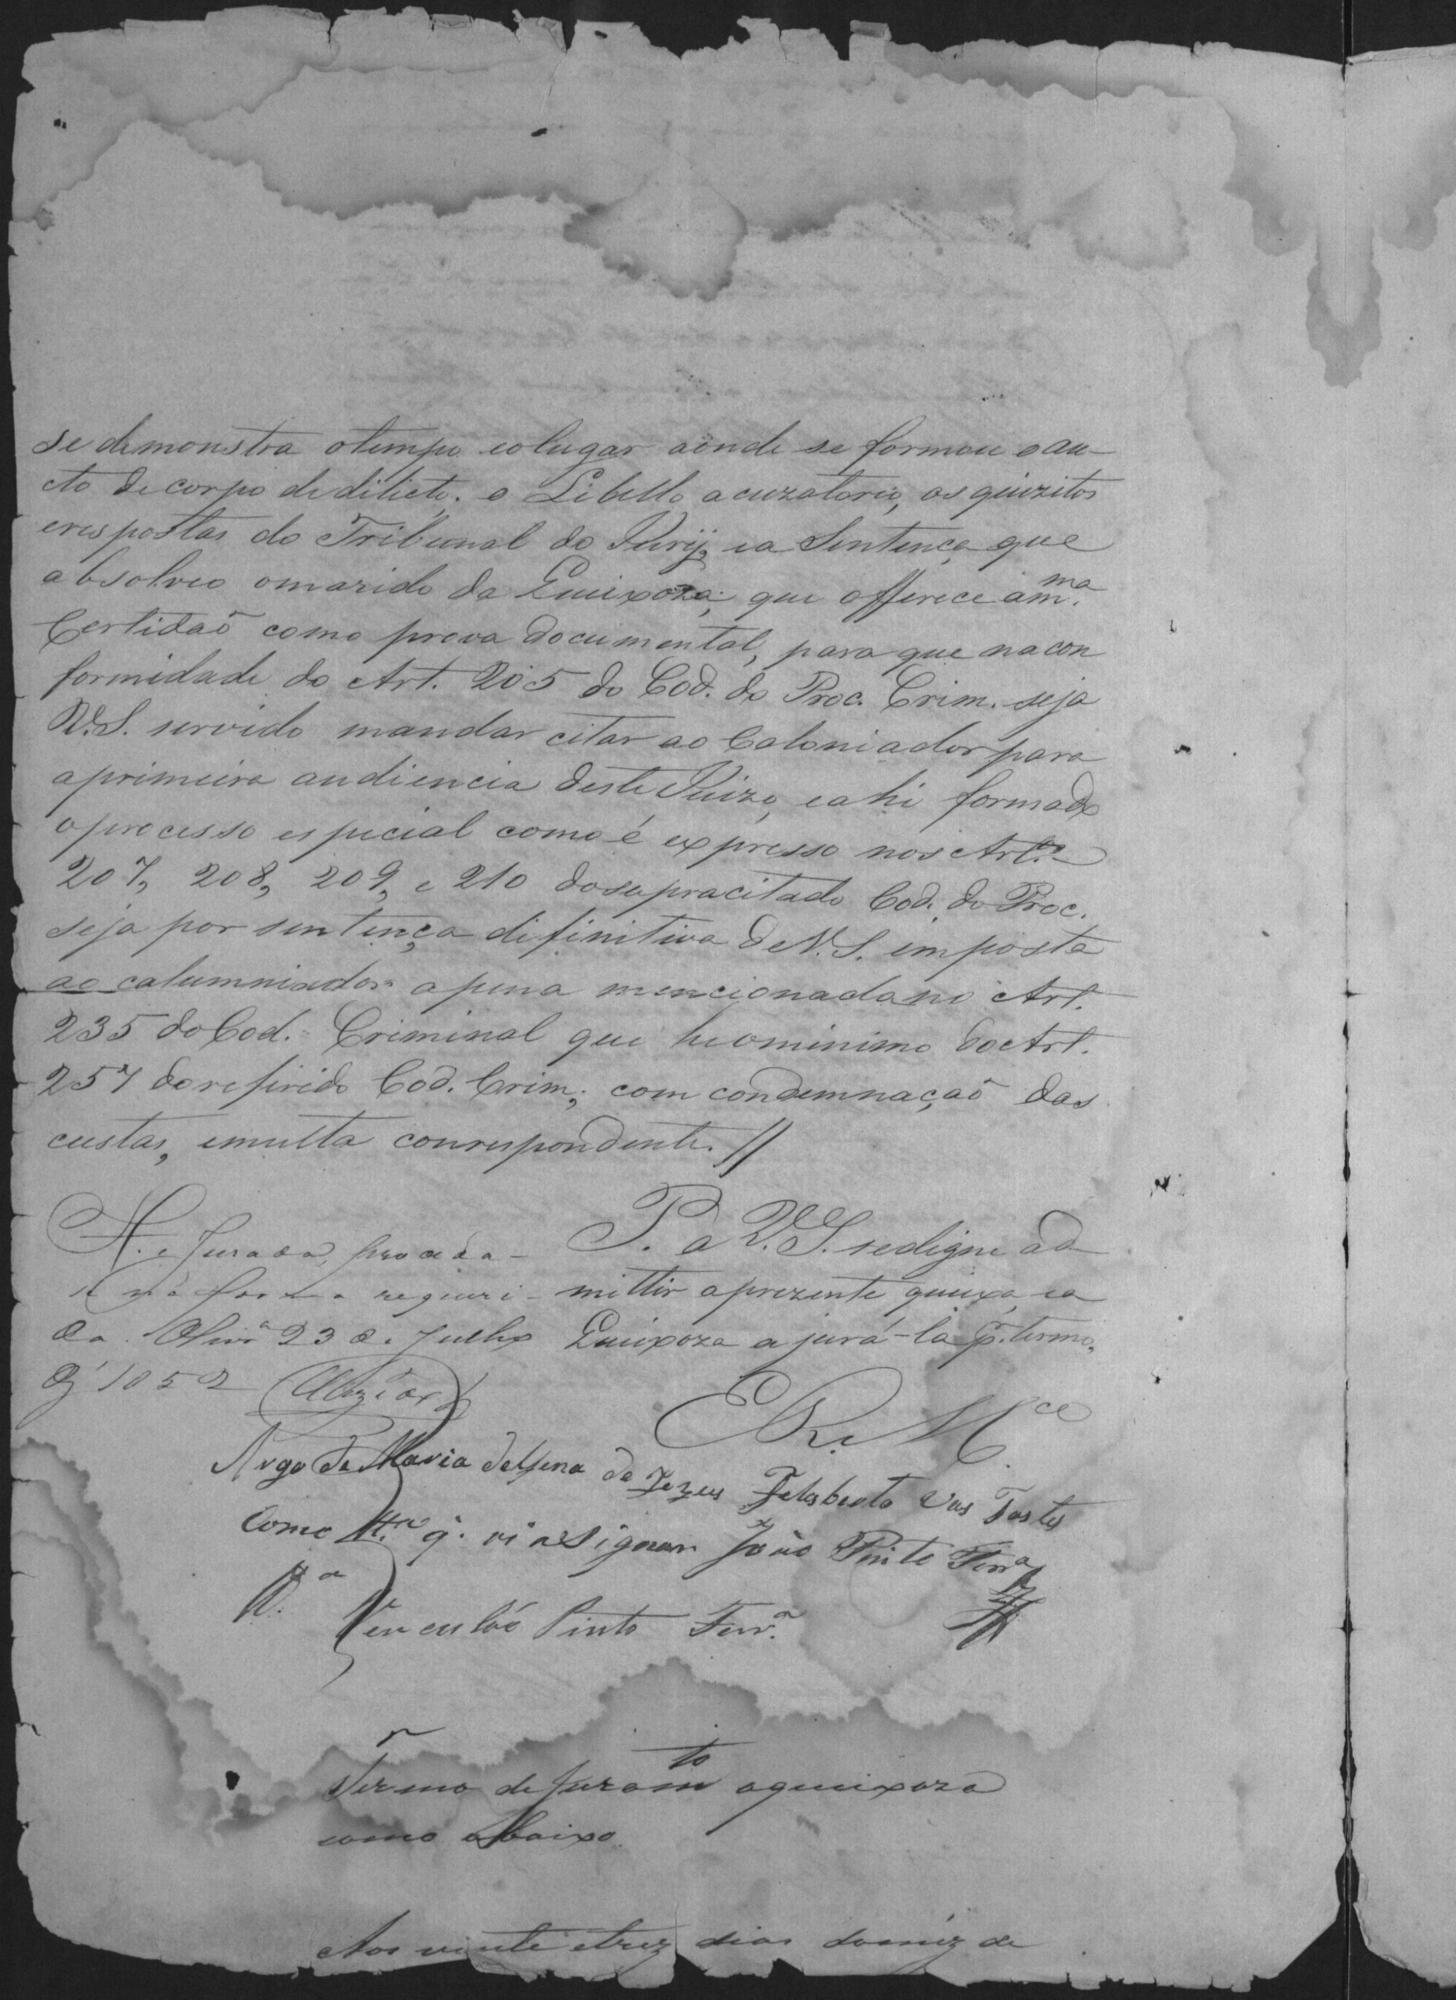 se demonstra otempo eolugar aonde se formou oau-
cto de corpo dedilicto, o Libello acuzatorio, os quizitos
erespostas do Tribunal do Jurij, ea Sentença que
absolveo omarido da Queixoza; que offerece am.ma
Certidaõ como prova documental, para que nacon
formidade do Art. 205 do Cod. do Proc. Crim. seja
V.S. servido mandar citar ao Caloniador para
aprimeira audiencia deste Juizo, eahi formado
oprocesso especial como é expresso nos Art.os
207, 208, 209, e 210 dosupracitado Cod. do Proc.
seja por sentença difinitiva deV.S. imposta
ao calumniador apena mencionadano Art.
235 do Cod. Criminal que heominimo doArt.
257 do referido Cod. Crim; com condemnaçaõ das
custas, emulta conrespondente. //
P. a V.S. sedigne ad
mittir aprezente queixa, ea
Queixoza ajurá-la p.r termo.
A. e Jurada, proceda-
se na forma requeri-
da. 23 de Julho
de 1852
E R. M.ce
Arogo de Maria de Jezus Felisberto Vas Tostes
Como tt.a q. vi asignar João Pinto Ferr.a
Pinto Ferr.a
Termo de Juram.to aqueixoza
como abaixo
Aos vinte etrez dias doméz de